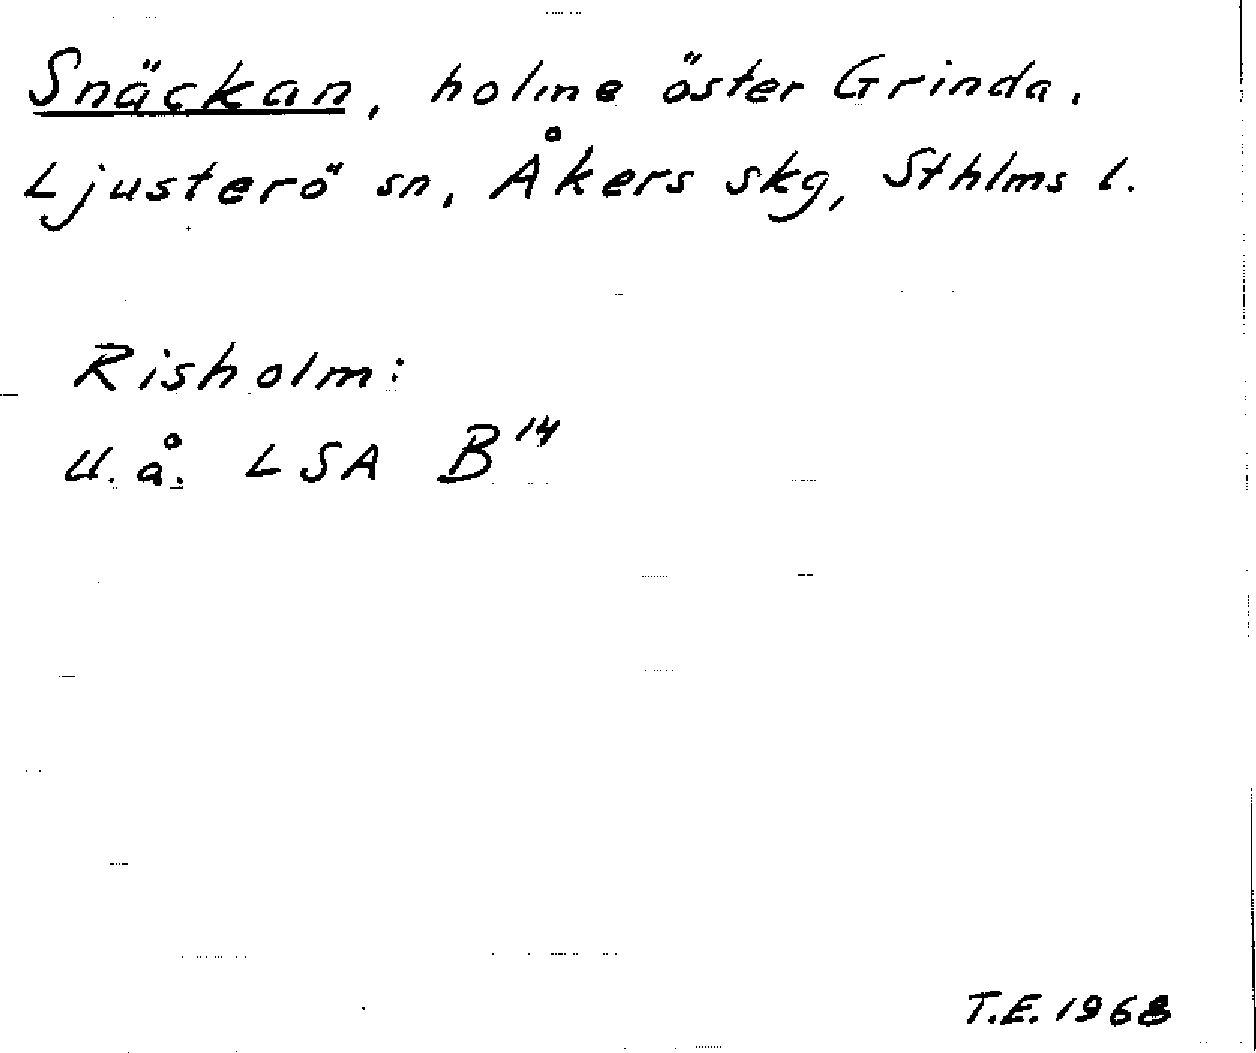 Snäckan, holme öster Grinda.
Ljusterö sn, Åkers skg, Sthlms l.
Risholm:
U.å. LSA B¹⁴
T.E. 1968